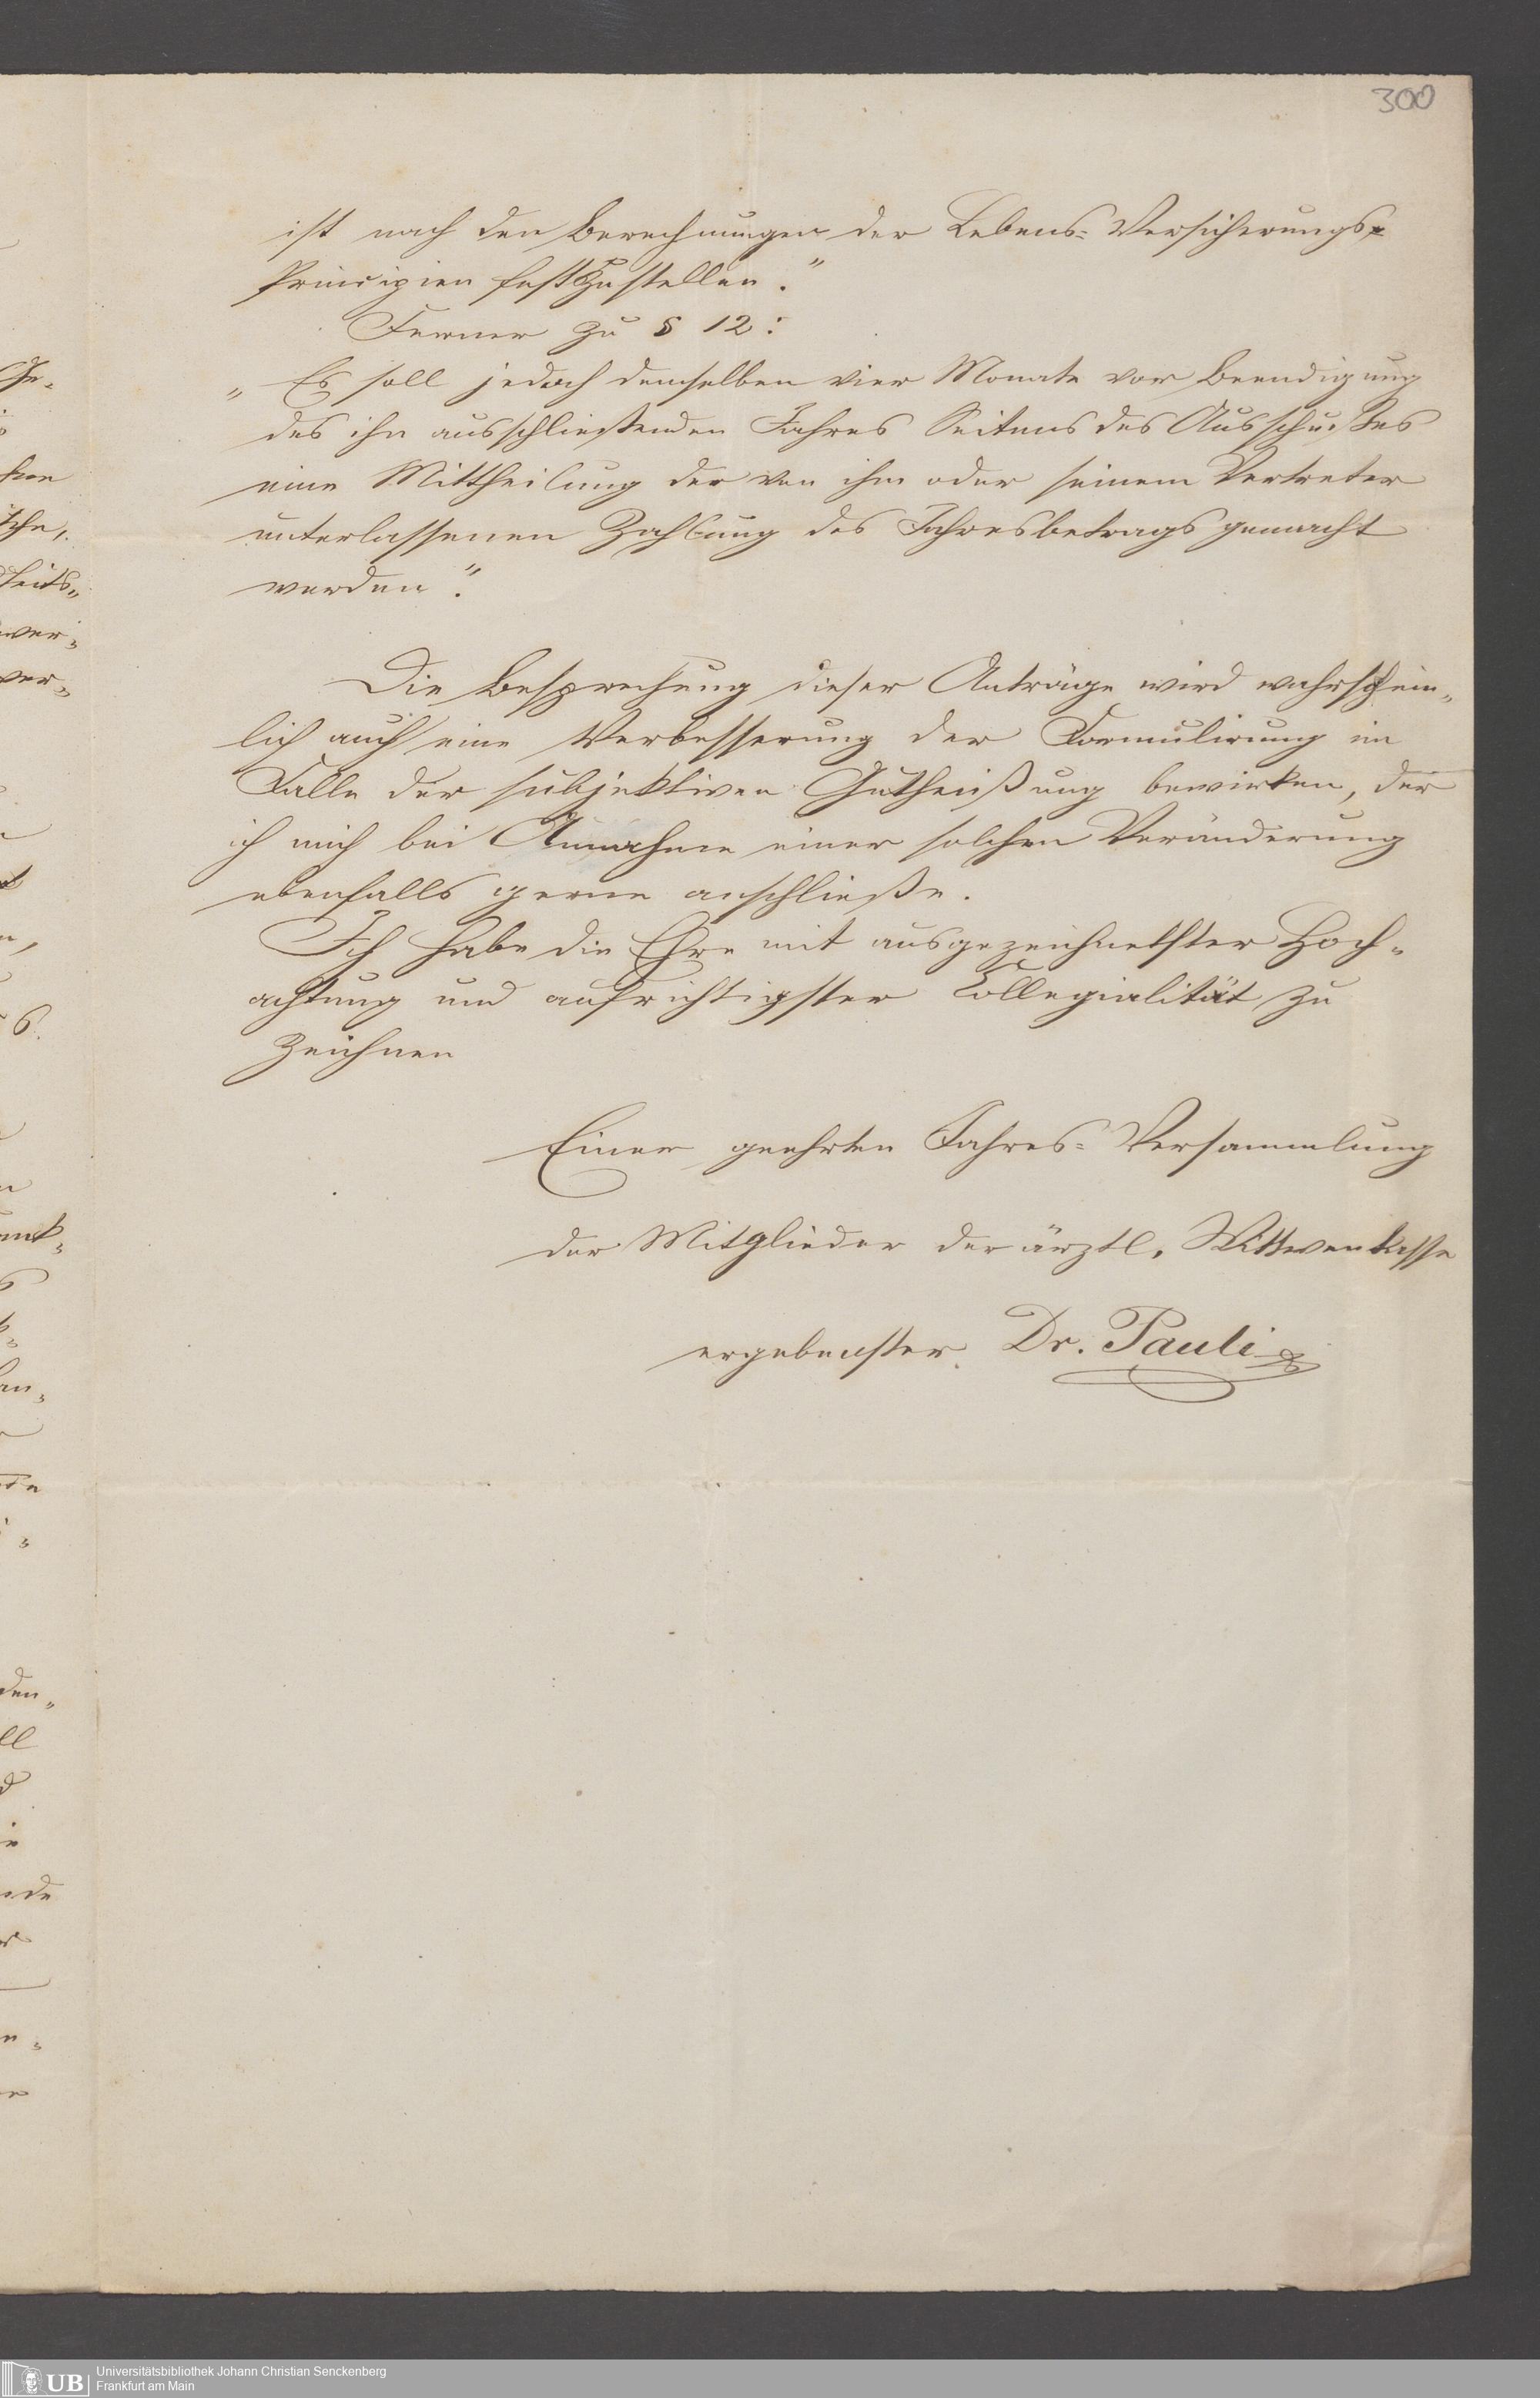 300
ist nach den Berechnungen der Lebens-Versicherungs-
Principien festzustellen."
Ferner zu § 12:
„Es soll jedoch demselben vier Monate vor Beendigung
des ihn ausschließenden Jahres Seitens des Ausschußes
eine Mittheilung der von ihm oder seinem Vertreter
unterlassenen Zahlung des Jahresbetrags gemacht
werden."
Die Besprechung dieser Anträge wird wahrschein-
lich auch eine Verbesserung der Formulirung im
Falle der subjektiven Gutheißung bewirken, der
ich mich bei Annahme einer solchen Veränderung
ebenfalls gerne anschließe.
Ich habe die Ehre mit ausgezeichnetster Hoch-
achtung und aufrichtigster Collegialität zu
zeichnen
Einer geehrten Jahres-Versammlung
der Mitglieder der ärztl. Wittwenkasse
ergebenster Dr. Pauli
UB
Universitätsbibliothek Johann Christian Senckenberg
Frankfurt am Main